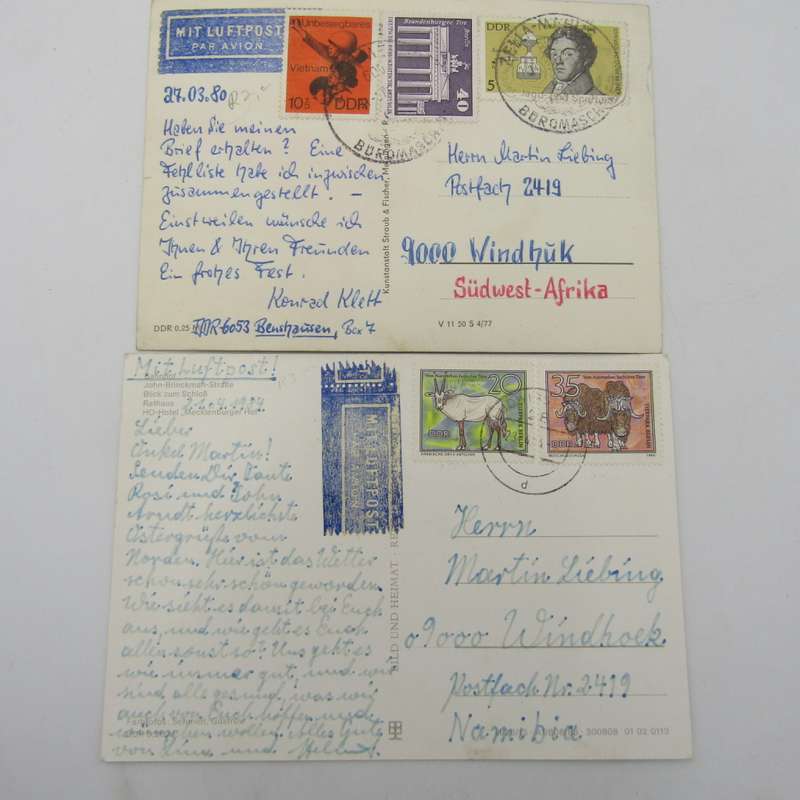 MIT LUFTPOST
PAR AVION
Unbesiegbares
Vietnam
10+5 DDR
Brandenburger Tor
Berlin
40
DDR
5
ZELLA-MEHLIS
BÜROMASCH
BÜROMASCH
27.03.80
Haben Sie meinen
Brief erhalten? Eine
Fehlliste habe ich inzwischen
zusammengestellt. –
Einstweilen wünsche ich
Ihnen & Ihren Freunden
Ein frohes Fest.
Konrad Klett
DDR 6053 Benshausen, Box 7
DDR 0.25
Kunstanstalt Straub & Fischer, Meiningen
Herrn Martin Liebing
Postfach 2419
9000 Windhuk
Südwest-Afrika
V 11 50 S 4/77
Mit Luftpost!
John-Brinckman-Straße
Blick zum Schloß
Rathaus
HO-Hotel
Liebe
Onkel Martin!
Senden Dir Tante
Rosi und John
Arndt herzlichste
Ostergrüße vom
Norden. Hier ist das Wetter
schon sehr schön geworden.
Wie sieht es damit bei Euch
aus, und wie geht es Euch
allen sonst so? Uns geht es
wie immer gut, und wir
sind alle gesund, was wir
auch von Euch hoffen und
wünschen wollen. Alles Gute
von und
MIT LUFTPOST
BILD UND HEIMAT
20
DDR
TIERPARK BERLIN
35
DDR
TIERPARK BERLIN
Herrn
Martin Liebing
09000 Windhoek
Postfach Nr. 2419
Namibia
300808 01 02 0113